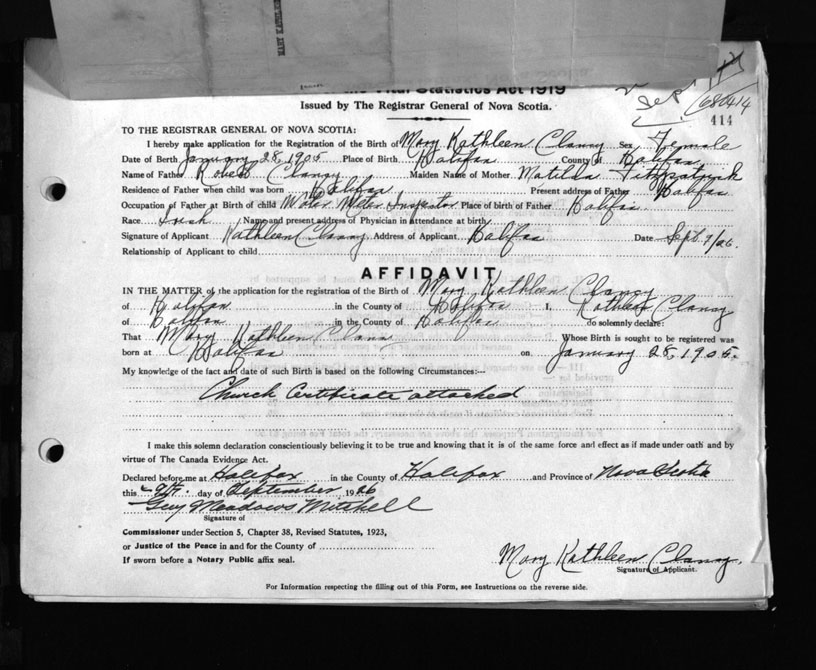 MARY KATHLEEN
the Vital Statistics Act 1919
Issued by The Registrar General of Nova Scotia.
Sept
680414
414
TO THE REGISTRAR GENERAL OF NOVA SCOTIA:
I hereby make application for the Registration of the Birth of Mary Kathleen Clancy Sex Female
Date of Berth January 28, 1905 Place of Birth Halifax County of Halifax
Name of Father Robert Clancy Maiden Name of Mother Matilda Fitzpatrick
Residence of Father when child was born Halifax Present address of Father Halifax
Occupation of Father at Birth of child Water Meter Inspector Place of birth of Father Halifax
Race Irish Name and present address of Physician in attendance at birth
Signature of Applicant Kathleen Clancy Address of Applicant Halifax Date Sept 9/26.
Relationship of Applicant to child
AFFIDAVIT
IN THE MATTER of the application for the registration of the Birth of Mary Kathleen Clancy
of Halifax in the County of Halifax I, Kathleen Clancy
of Halifax in the County of Halifax do solemnly declare:
That Mary Kathleen Clancy Whose Birth is sought to be registered was
born at Halifax on January 28, 1905.
My knowledge of the fact and date of such Birth is based on the following Circumstances:—
Church Certificate attached
I make this solemn declaration conscientiously believing it to be true and knowing that it is of the same force and effect as if made under oath and by
virtue of The Canada Evidence Act.
Declared before me at Halifax in the County of Halifax and Province of Nova Scotia
this 9th. day of September 1926
Guy Meadows Mitchell
Signature of
Commissioner under Section 5, Chapter 38, Revised Statutes, 1923,
or Justice of the Peace in and for the County of
If sworn before a Notary Public affix seal.
Mary Kathleen Clancy.
Signature of Applicant.
For Information respecting the filling out of this Form, see Instructions on the reverse side.